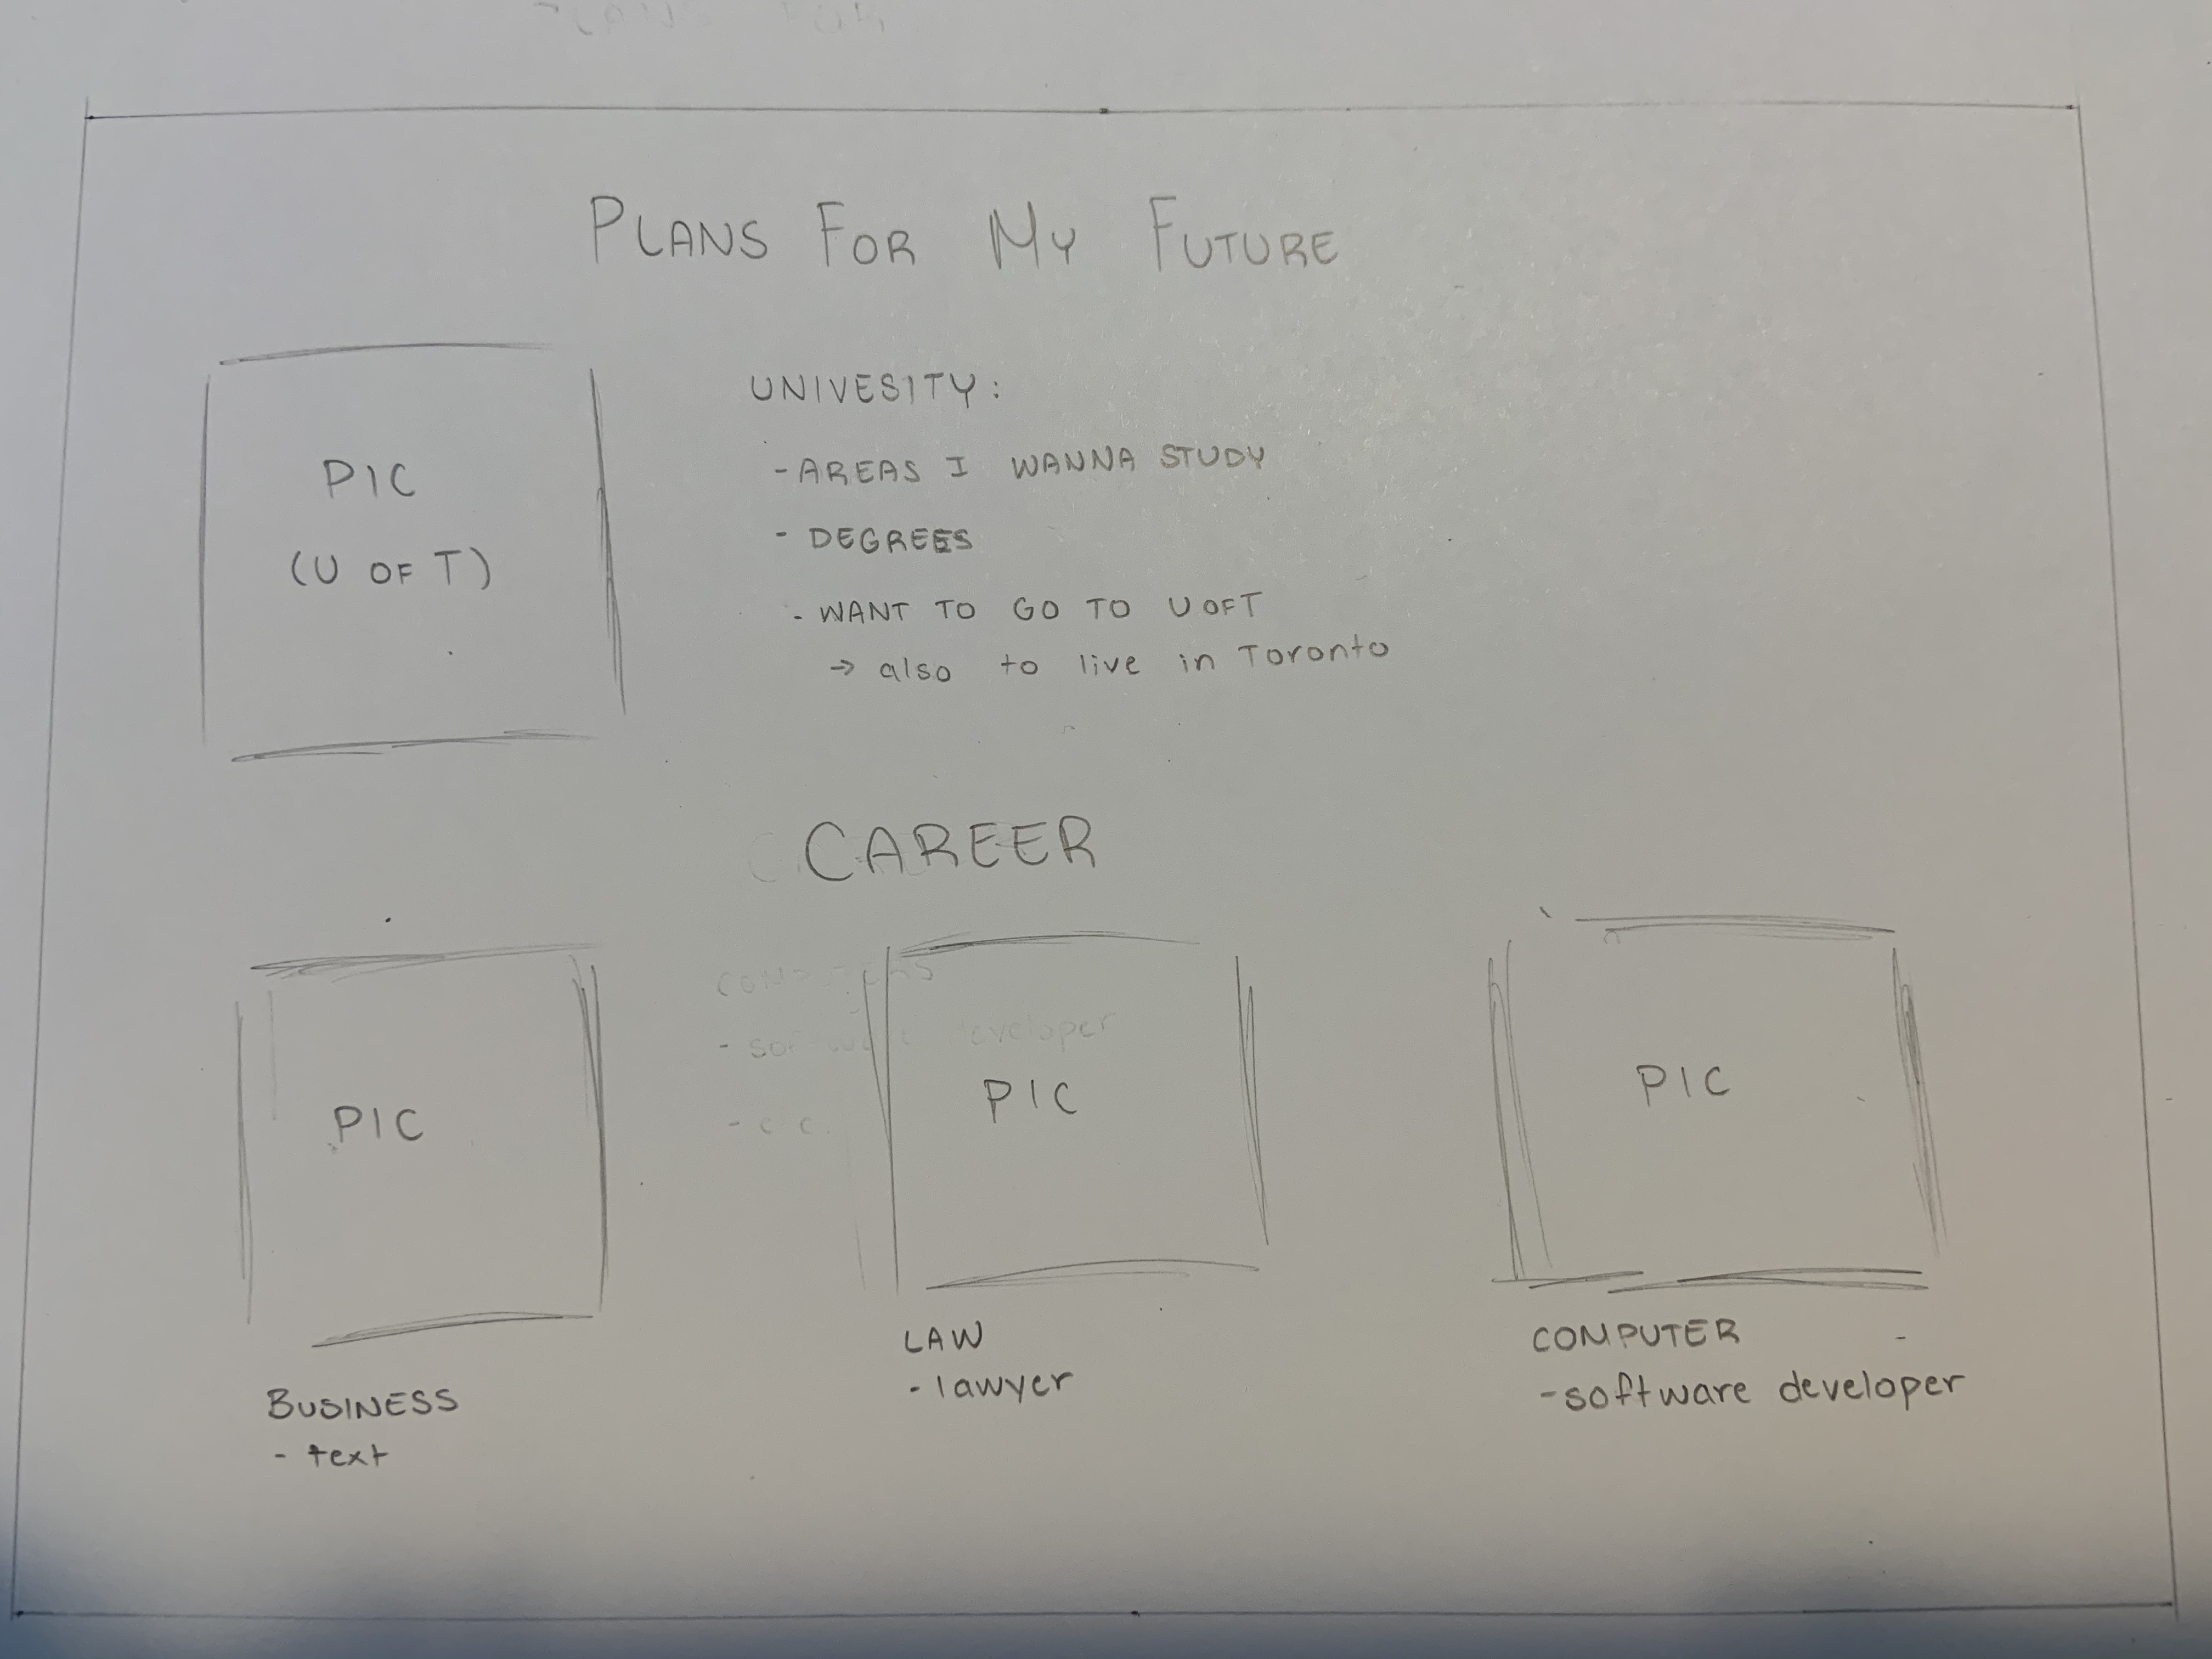 PLANS FOR MY FUTURE
PIC
(U OF T)
UNIVESITY:
- AREAS I WANNA STUDY
- DEGREES
- WANT TO GO TO U OFT
→ also to live in Toronto
CAREER
PIC
BUSINESS
- text
PIC
LAW
- lawyer
PIC
COMPUTER
- software developer